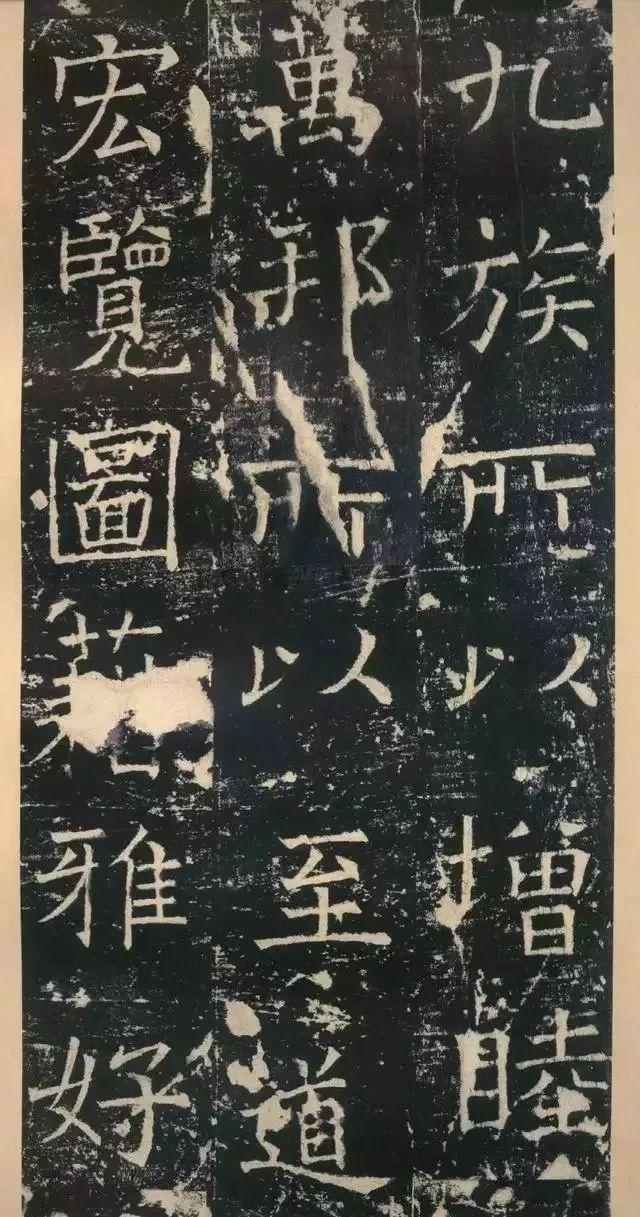 九族所以增睦
萬邦所以至道
宏覽圖籍雅好